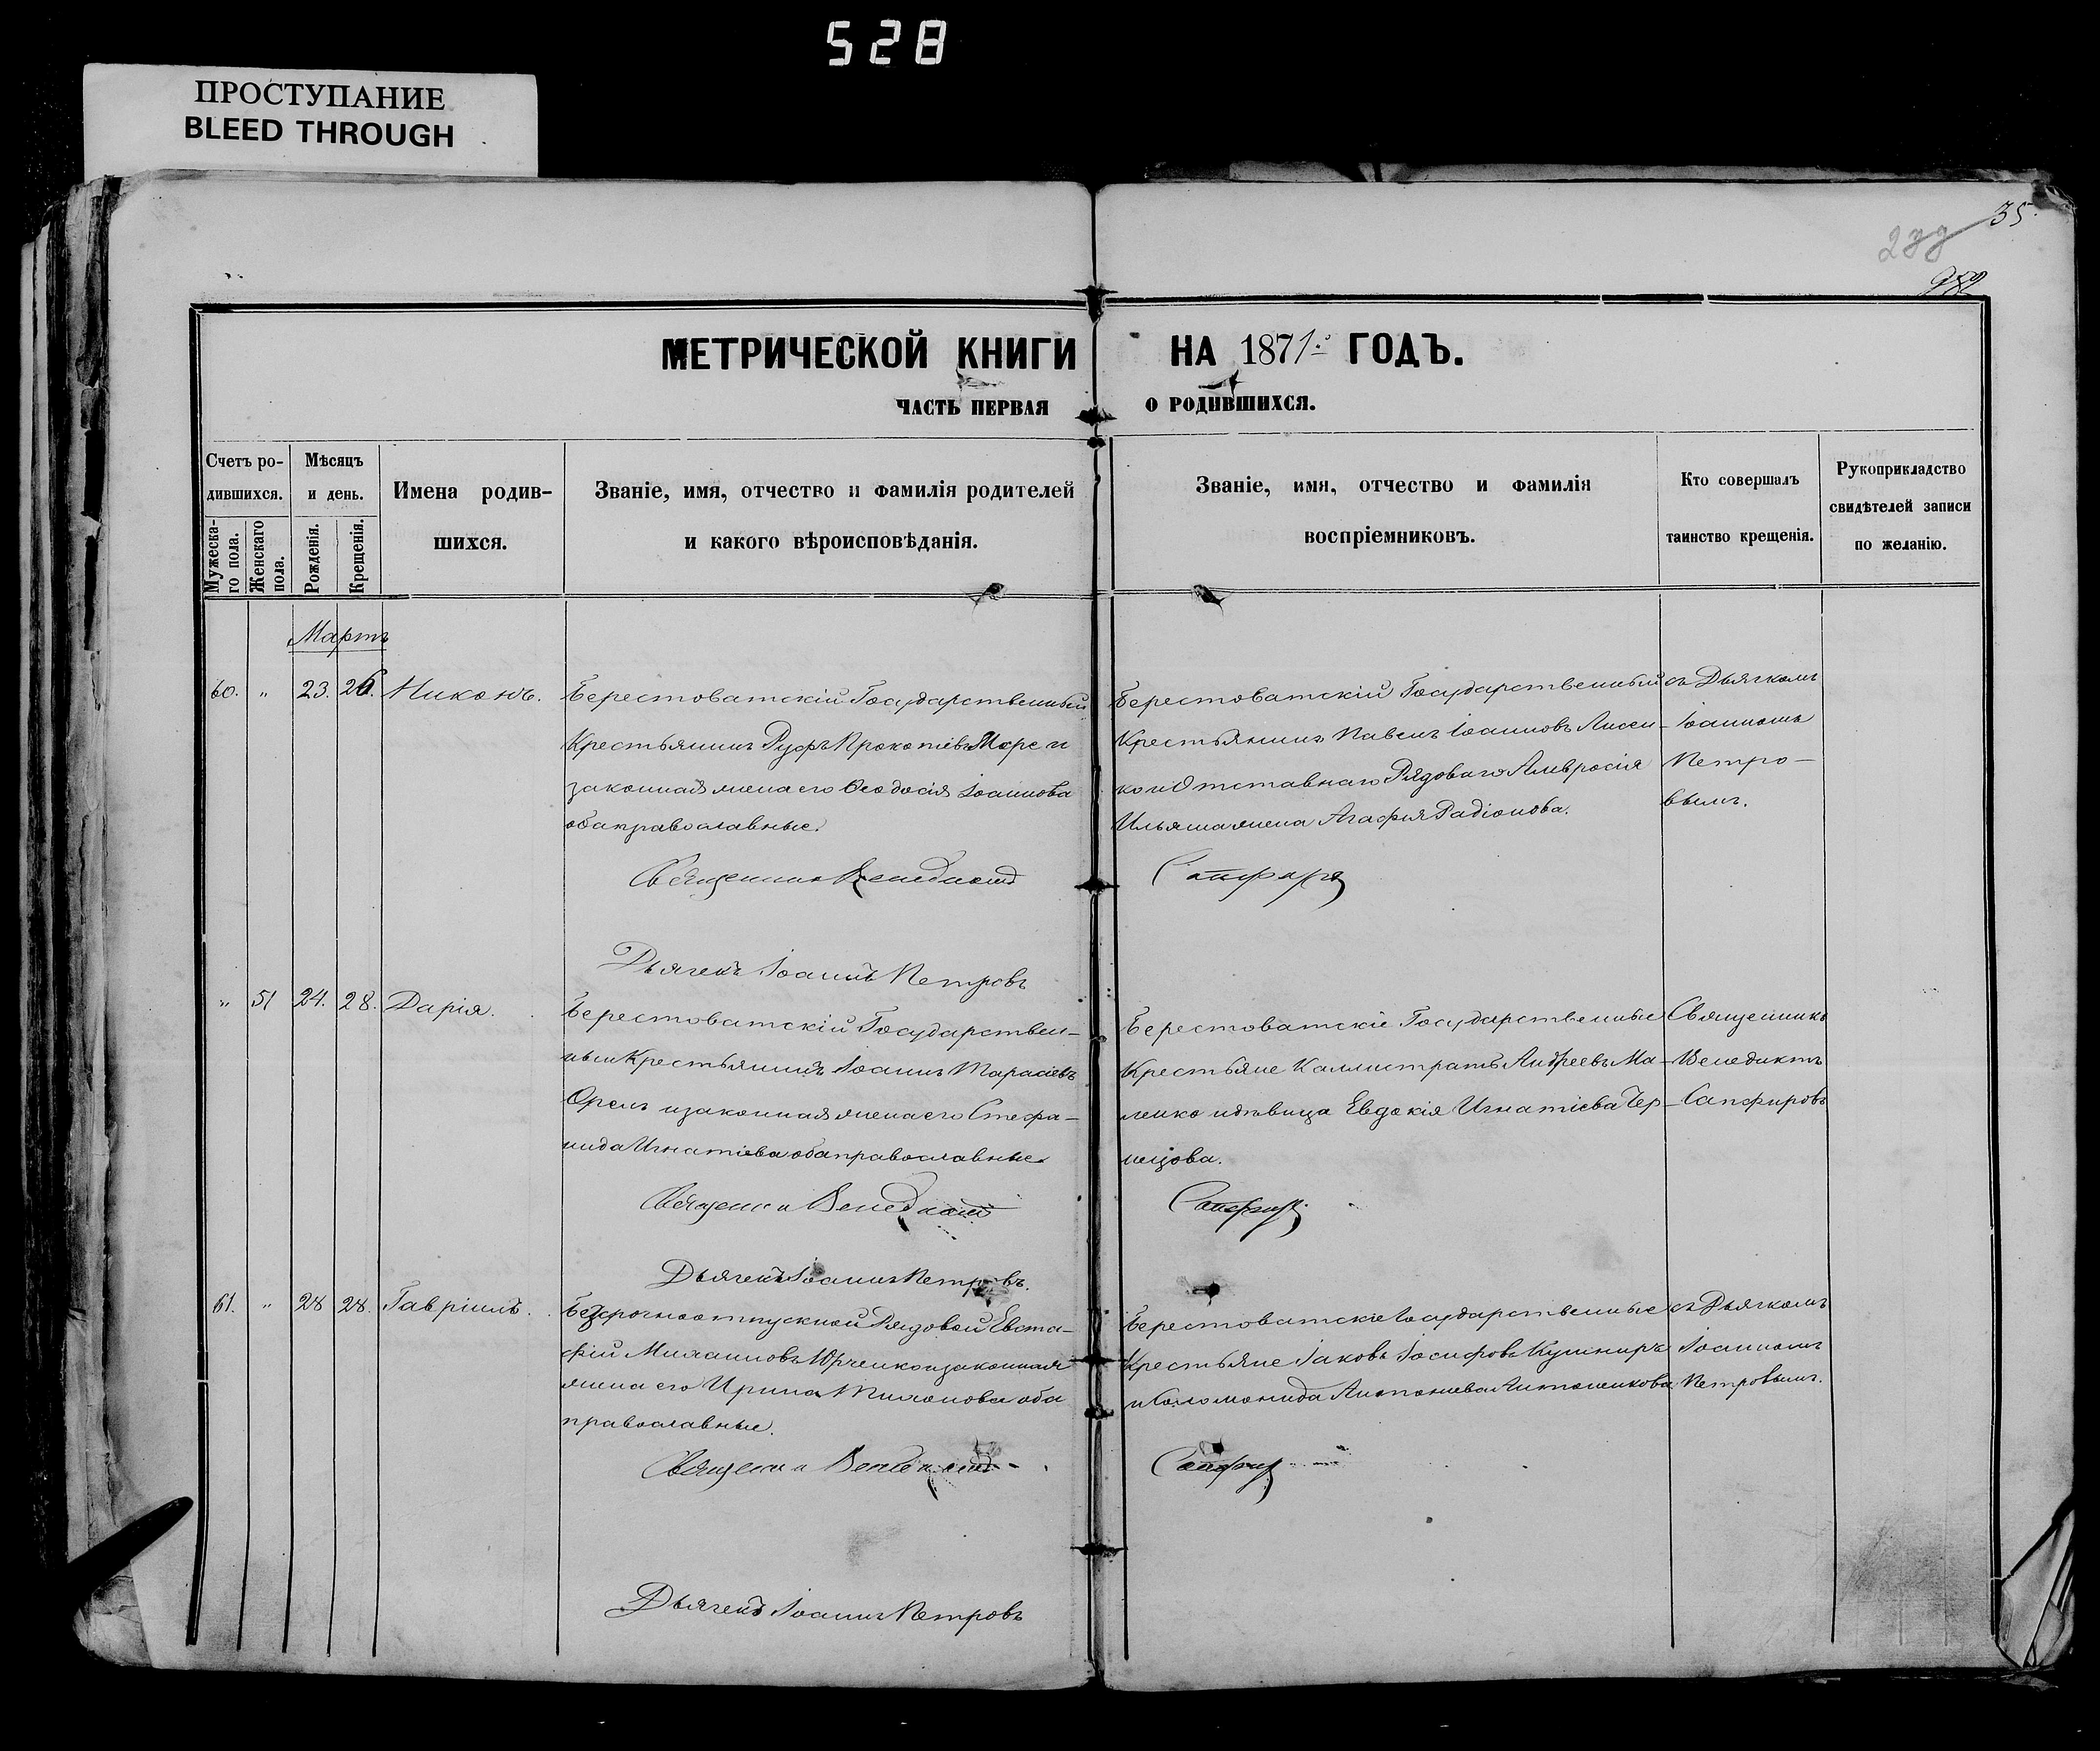 528
ПРОСТУПАНИЕ
BLEED THROUGH
35.
МЕТРИЧЕСКОЙ КНИГИ НА 1871 ГОДЪ.
ЧАСТЬ ПЕРВАЯ О РОДИВШИХСЯ.
Счетъ ро-
дившихся.
Мужеска-
го пола.
Женскаго
пола.
Мѣсяцъ
и день.
Рожденія.
Крещенія.
Имена родив-
шихся.
Званіе, имя, отчество и фамилія родителей
и какого вѣроисповѣданія.
Званіе, имя, отчество и фамилія
воспріемниковъ.
Кто совершалъ
таинство крещенія.
Рукоприкладство
свидѣтелей записи
по желанію.
Мартъ
60. „ 23. 26. Никонъ.
Берестоватскій Государственный
Крестьянинъ Руфъ Прокопіевъ Море и
законная жена его Ѳеодосія Іоаннова
оба православные.
Священник Венедикт
Дьячекъ Іоаннъ Петровъ
Берестоватскій Государственный
Крестьянинъ Павелъ Іоанновъ Лисен-
ко и Отставнаго Рядоваго Амвросія
Ильяша жена Агафія Радіонова.
Сапфиров
съ Дьячкомъ
Іоанномъ
Петро-
вымъ.
„ 51 24. 28. Дарія.
Берестоватскій Государствен-
ный Крестьянинъ Іоаннъ Тарасіевъ
Орелъ и законная жена его Стефа-
нида Игнатіева оба православные
Священник Венедикт
Дьячекъ Іоаннъ Петровъ.
Берестоватскіе Государственные
Крестьяне Каллистратъ Андреевъ Ма-
ленко и дѣвица Евдокія Игнатіева Чер-
нецова.
Сапфиров
Священникъ
Венедиктъ
Сапфировъ
61. „ 28 28. Гавріилъ.
Безсрочноотпускной Рядовой Евста-
фій Михаиловъ Юрченко и законная
жена его Ирина Тихонова оба
православные.
Священник Венедикт
Дьячекъ Іоаннъ Петровъ
Берестоватскіе Государственные
Крестьяне Іаковъ Іосифовъ Кушниръ
и Соломонида Антоніева Антоненкова
Сапфиров
съ Дьячкомъ
Іоанномъ
Петровымъ.